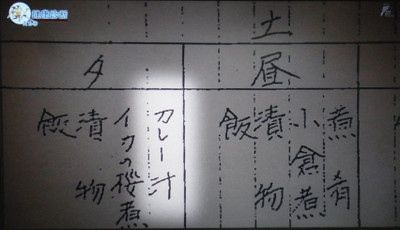 健康診断
土
昼
煮肴
小倉煮
漬物
飯
夕
カレー汁
イカの桜煮
漬物
飯